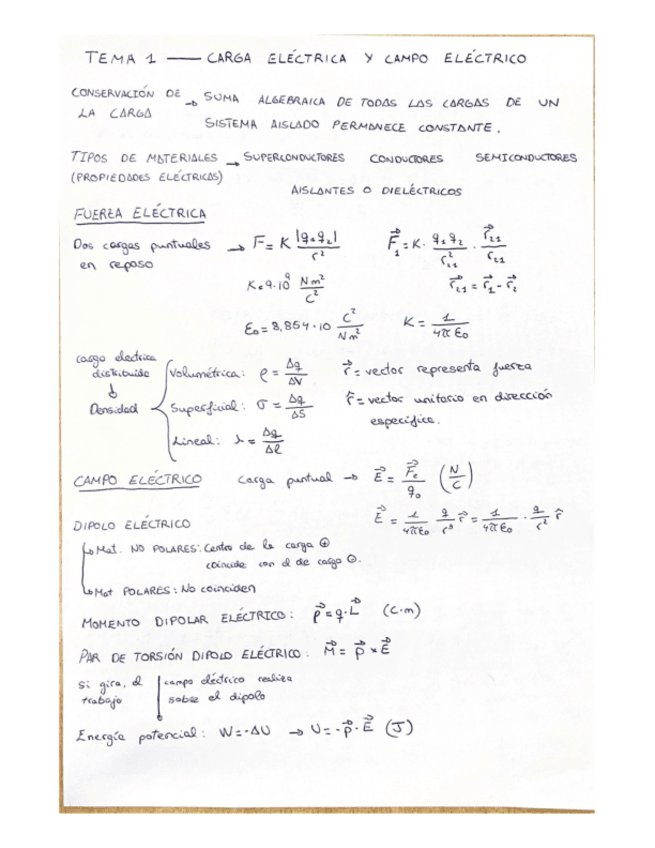 TEMA 1 — CARGA ELÉCTRICA Y CAMPO ELÉCTRICO
CONSERVACIÓN DE LA CARGA → SUMA ALGEBRAICA DE TODAS LAS CARGAS DE UN
SISTEMA AISLADO PERMANECE CONSTANTE.
TIPOS DE MATERIALES → SUPERCONDUCTORES CONDUCTORES SEMICONDUCTORES
(PROPIEDADES ELÉCTRICAS)
AISLANTES O DIELÉCTRICOS
FUERZA ELÉCTRICA
Dos cargas puntuales en reposo → F = K |q₁q₂| / r² F⃗₁ = K · q₁q₂ / r₂₁² · r⃗₂₁ / r₂₁
K = 9·10⁹ Nm² / C² r⃗₂₁ = r⃗₁ - r⃗₂
ε₀ = 8,854·10 C² / Nm² K = 1 / 4πε₀
carga electrica
distribuida
↓
Densidad
Volumétrica: ρ = Δq / ΔV r⃗ = vector representa fuerza
Superficial: σ = Δq / ΔS r̂ = vector unitario en dirección
especifica.
Lineal: λ = Δq / Δl
CAMPO ELÉCTRICO carga puntual → E⃗ = F⃗e / q₀ (N / C)
E⃗ = 1 / 4πε₀ q / r³ r⃗ = 1 / 4πε₀ · q / r² r̂
DIPOLO ELÉCTRICO
Mat. NO POLARES: Centro de la carga ⊕
coincide con el de carga ⊖.
Mat POLARES: No coinciden
MOMENTO DIPOLAR ELÉCTRICO: p⃗ = q·L⃗ (C·m)
PAR DE TORSIÓN DIPOLO ELÉCTRICO: M⃗ = p⃗ × E⃗
Si gira, el campo eléctrico realiza
trabajo sobre el dipolo
Energía potencial: W = -ΔU → U = -p⃗ · E⃗ (J)